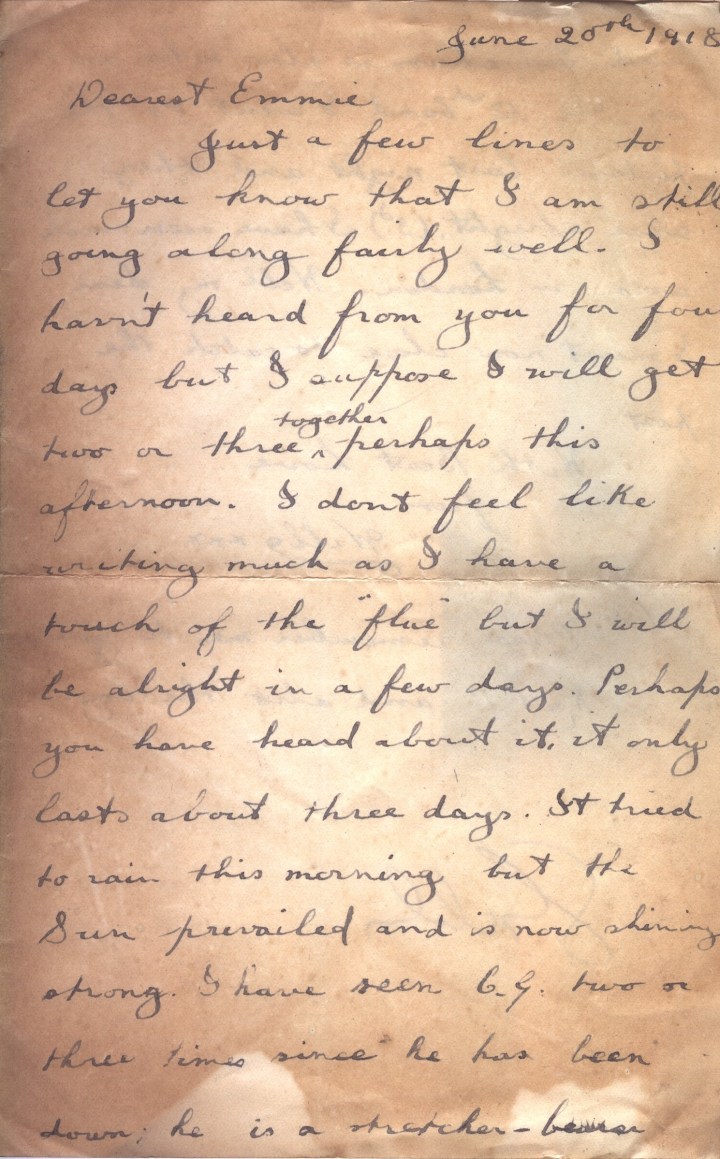 June 20th 1918
Dearest Emmie
Just a few lines to
let you know that I am still
going along fairly well. I
havn't heard from you for fou
days but I suppose I will get
two or three ^ together perhaps this
afternoon. I dont feel like
writing much as I have a
touch of the "flue" but I will
be alright in a few days. Perhaps
you have heard about it, it only
lasts about three days. It tried
to rain this morning but the
Sun prevailed and is now shining
strong. I have seen C.G. two or
three times since he has been
down; he is a stretcher-bearer